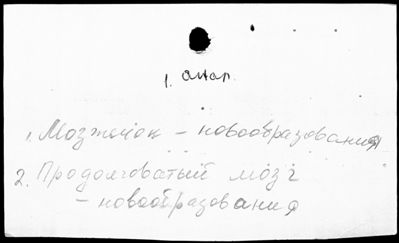 1. анал.
1. Мозжечок – новообразования
2. Продолговатый мозг
– новообразования